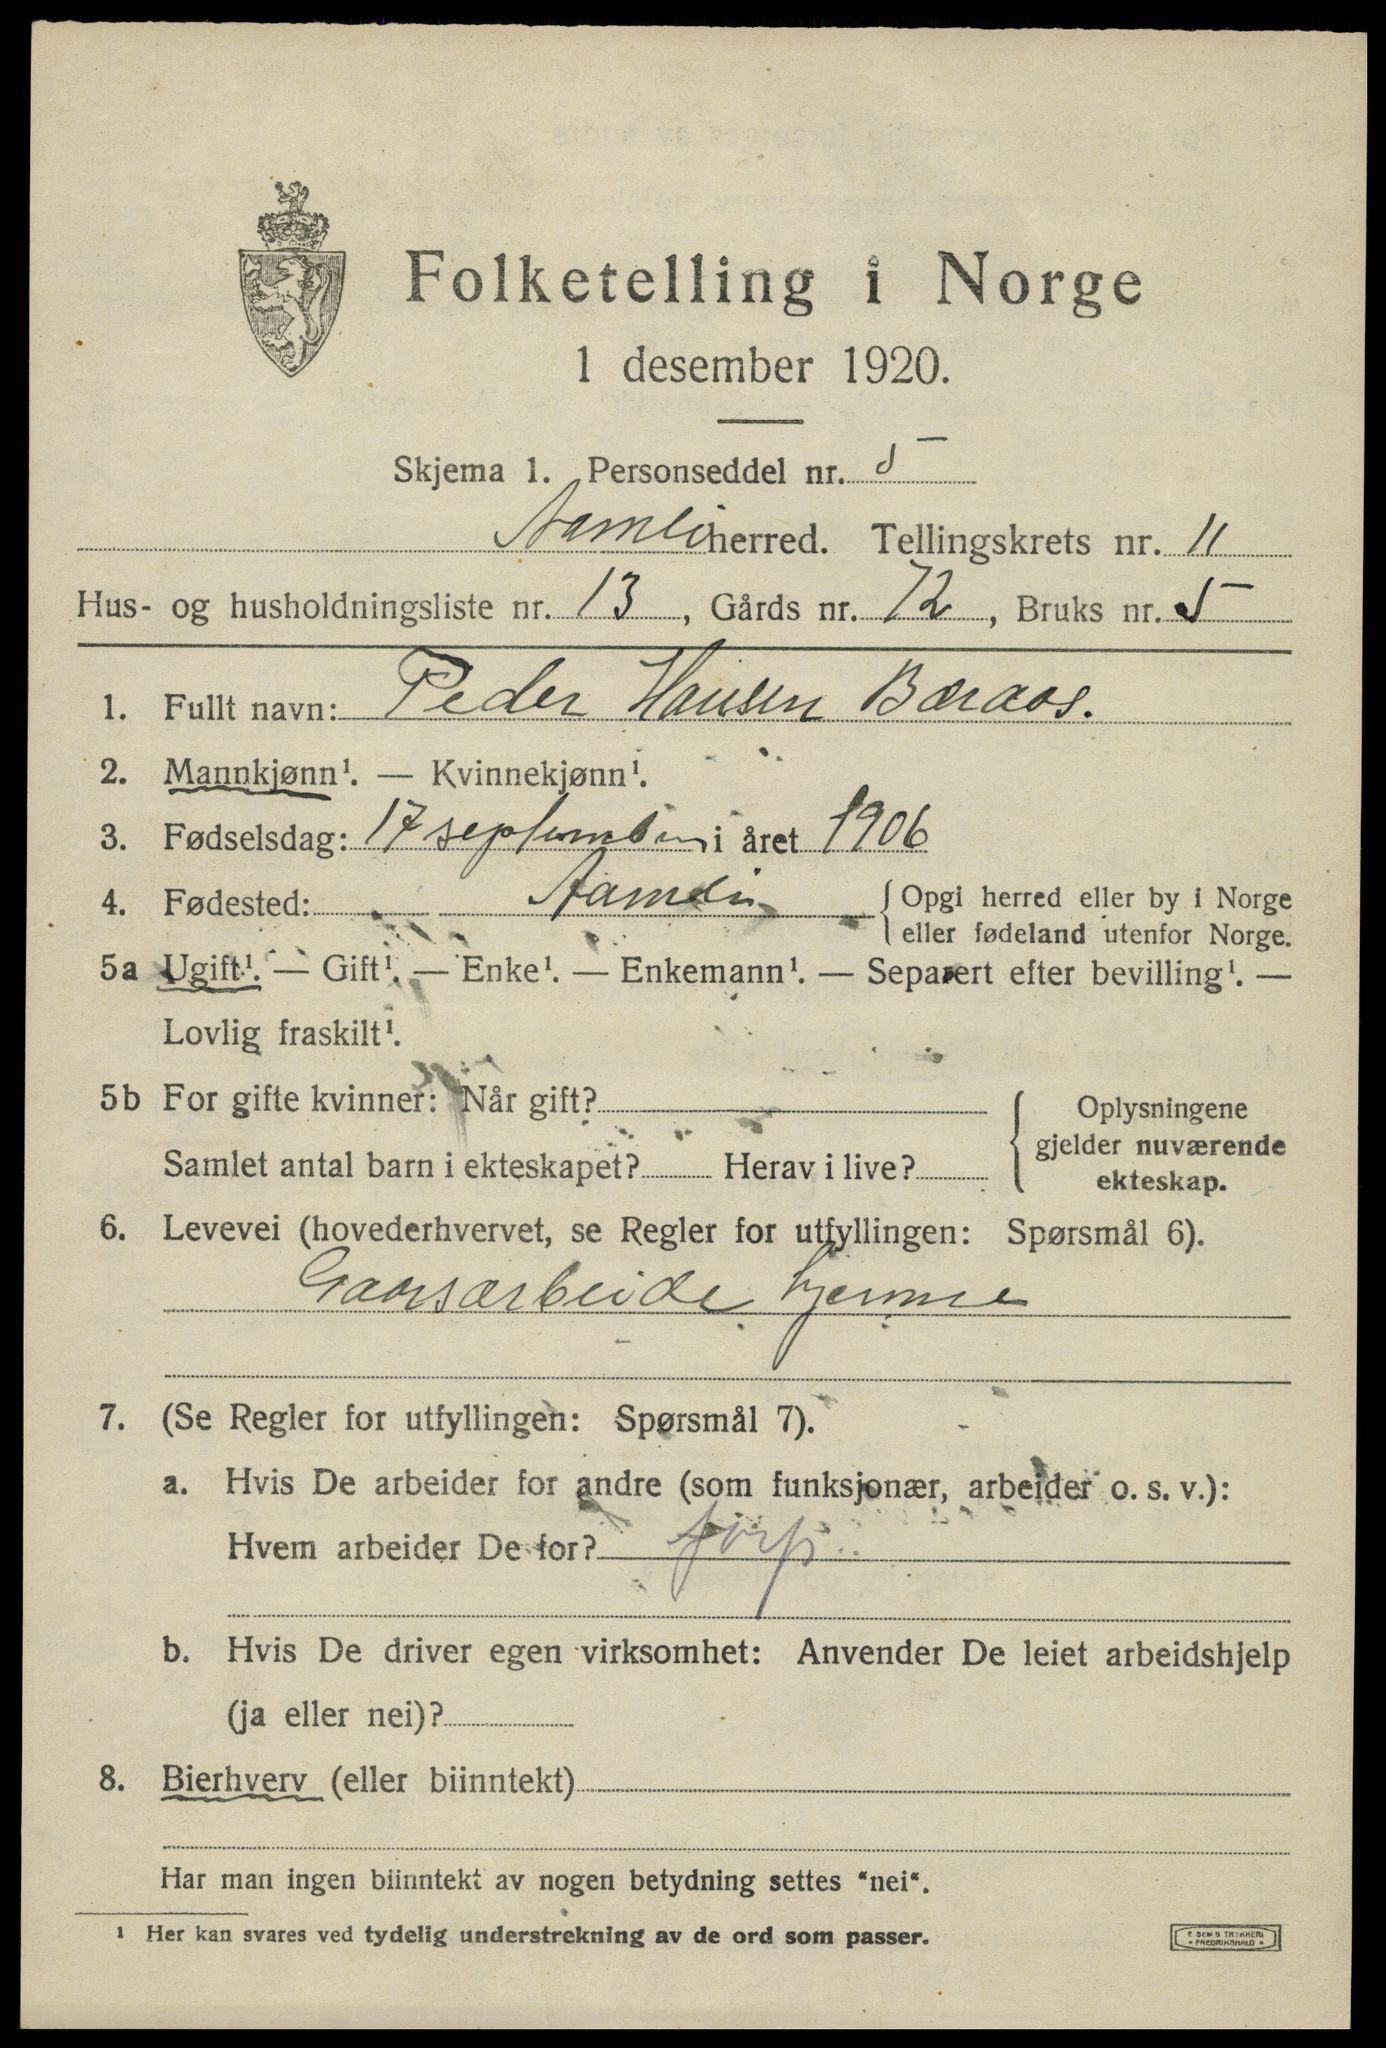 Folketelling i Norge
1 desember 1920.
Skjema 1. Personseddel nr. 5
Aamli herred. Tellingskrets nr. 11
Hus- og husholdningsliste nr. 13, Gårds nr. 72, Bruks nr. 5
1. Fullt navn: Peder Hansen Bæraas.
2. Mannkjønn¹. — Kvinnekjønn¹.
3. Fødselsdag: 17 september i året 1906
4. Fødested: Aamli {Opgi herred eller by i Norge
eller fødeland utenfor Norge.
5a Ugift¹. — Gift¹. — Enke¹. — Enkemann¹. — Separert efter bevilling¹. —
Lovlig fraskilt¹.
5b For gifte kvinner: Når gift?
Samlet antal barn i ekteskapet? Herav i live?
Oplysningene
gjelder nuværende
ekteskap.
6. Levevei (hovederhvervet, se Regler for utfyllingen: Spørsmål 6).
Gaarsarbeide hjemme
7. (Se Regler for utfyllingen: Spørsmål 7).
a. Hvis De arbeider for andre (som funksjonær, arbeider o. s. v.):
Hvem arbeider De for? forp
b. Hvis De driver egen virksomhet: Anvender De leiet arbeidshjelp
(ja eller nei)?
8. Bierhverv (eller biinntekt)
Har man ingen biinntekt av nogen betydning settes "nei".
¹ Her kan svares ved tydelig understrekning av de ord som passer.
E. SEMS TRYKKERI
FREDRIKSHALD